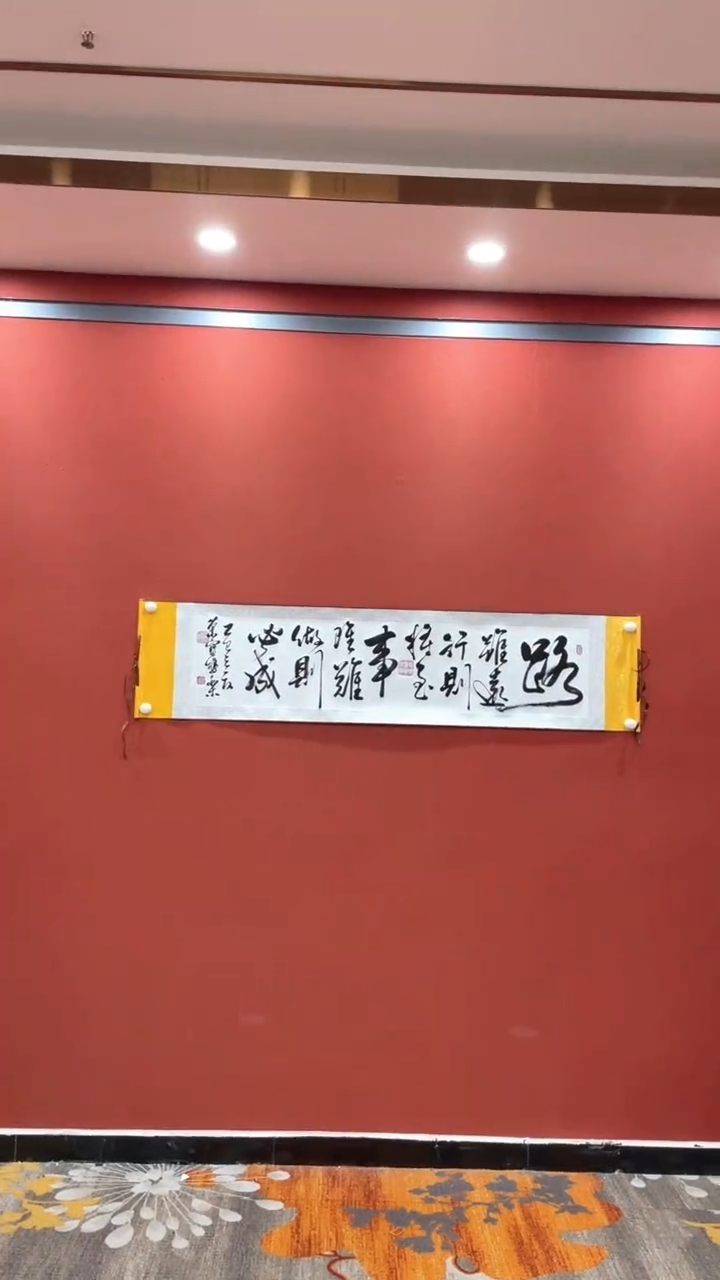 路
雖遠
行則
將至
事
雖難
做則
必成